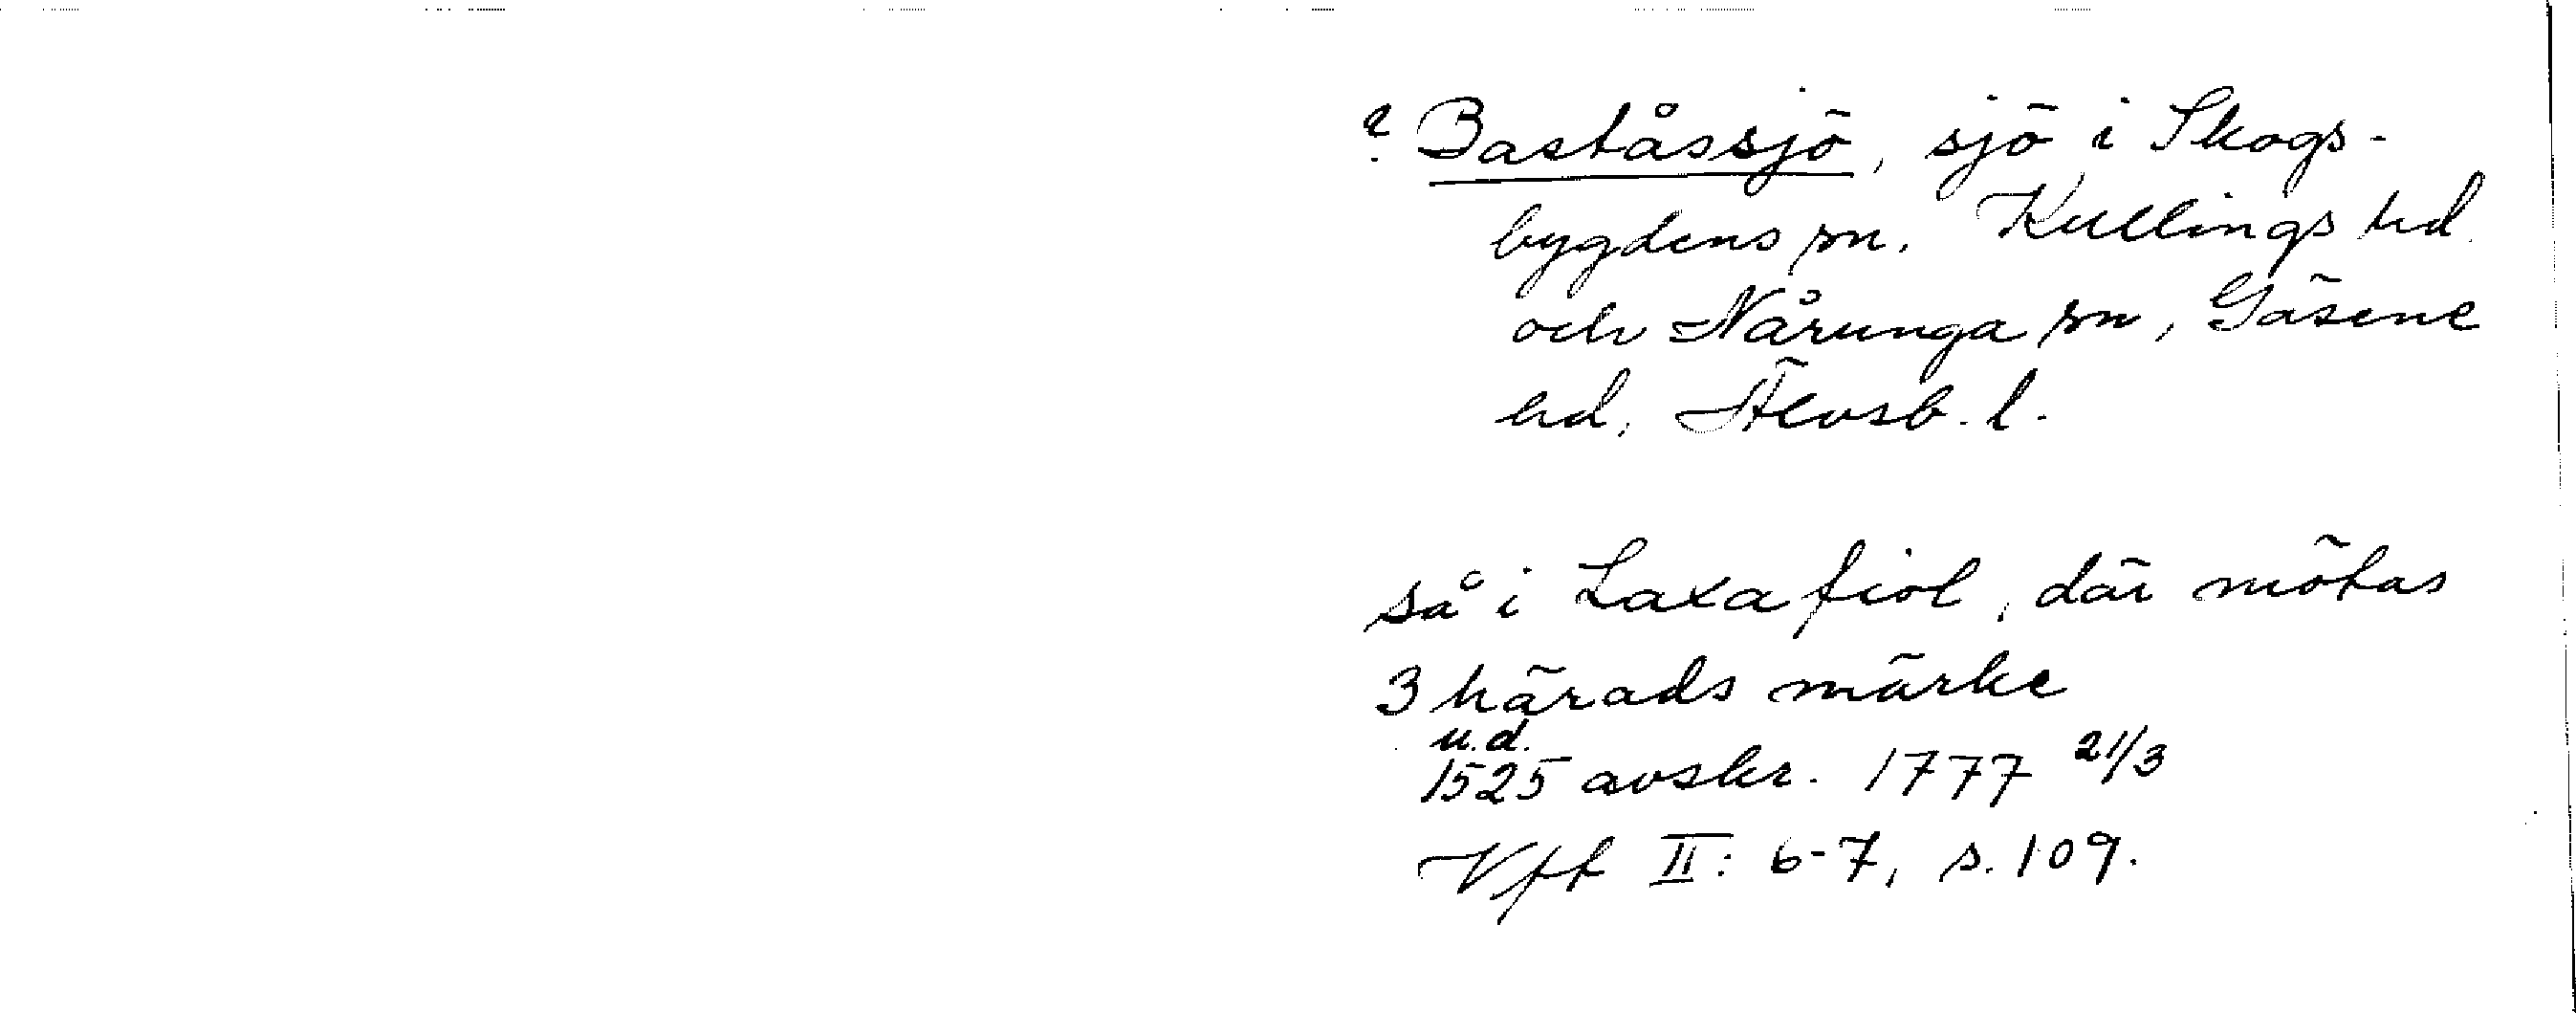 ? Baståssjö, sjö i Skogs-
bygdens sn. Kullings hd.
och Nårunga sn, Gäsene
hd, Älvsb. l.
så i Laxafiol, där mötas
3 härads märke
u.d.
1525 avskr. 1777 21/3
Vff II: 6-7, s. 109.